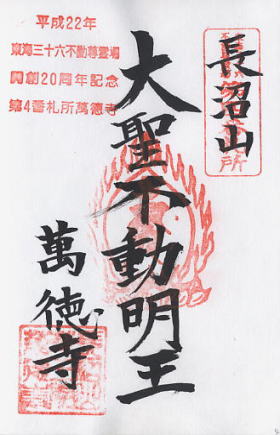 平成22年
東海三十六不動尊霊場
開創20周年記念
第4番札所萬徳寺
長沼山
大聖不動明王
萬徳寺